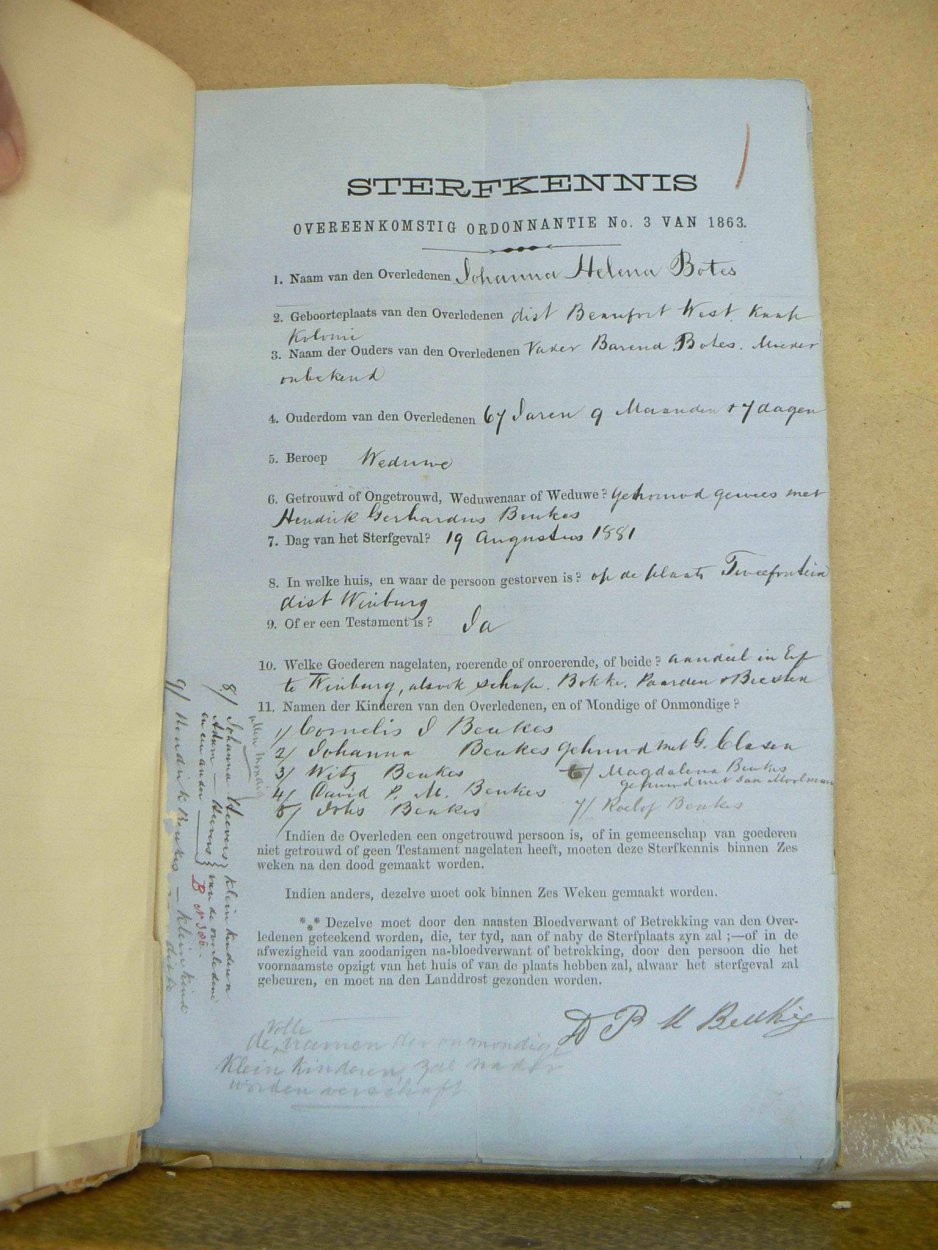 STERFKENNIS
OVEREENKOMSTIG ORDONNANTIE No. 3 VAN 1863.
1. Naam van den Overledenen Johanna Helena Botes
2. Geboorteplaats van den Overledenen dist Beaufort West Kaap
Kolonie
3. Naam der Ouders van den Overledenen Vader Barend Botes. Moeder
onbekend
4. Ouderdom van den Overledenen 67 Jaren 9 Maanden + 7 dagen
5. Beroep Weduwe
6. Getrouwd of Ongetrouwd, Weduwenaar of Weduwe? getrouwd gewees met
Hendrik Gerhardus Beukes
7. Dag van het Sterfgeval? 19 Augustus 1881
8. In welke huis, en waar de persoon gestorven is? op de plaats Tweefontein
dist Winburg
9. Of er een Testament is? Ja
10. Welke Goederen nagelaten, roerende of onroerende, of beide? aandeel in Erf
te Winburg, alsook schape. Bokke. Paarden & Beesten
11. Namen der Kinderen van den Overledenen, en of Mondige of Onmondige?
1/ Cornelis J Beukes
2/ Johanna Beukes getrouwd met G. Clasen
3/ Witz Beukes
6/ Magdalena Beukes
getrouwd met Jan Moolman
4/ David P. M. Beukes
5/ Johs Beukes
7/ Roelof Beukes
allen mondig
8/ Johanna Heevers } Klein kinderen
Adam — Heevers } van de overledene
en een ander —
B No 306.
9/ Hendrik Beukes — Klein kind
Indien de Overleden een ongetrouwd persoon is, of in gemeenschap van goederen
niet getrouwd of geen Testament nagelaten heeft, moeten deze Sterfkennis binnen Zes
weken na den dood gemaakt worden.
Indien anders, dezelve moet ook binnen Zes Weken gemaakt worden.
*** Dezelve moet door den naasten Bloedverwant of Betrekking van den Over-
ledenen geteekend worden, die, ter tyd, aan of naby de Sterfplaats zyn zal ;—of in de
afwezigheid van zoodanigen na-bloedverwant of betrekking, door den persoon die het
voornaamste opzigt van het huis of van de plaats hebben zal, alwaar het sterfgeval zal
gebeuren, en moet na den Landdrost gezonden worden.
D P M Beukes
Volle
de namen der onmondige
Klein Kinderen zal nader
worden verschaft